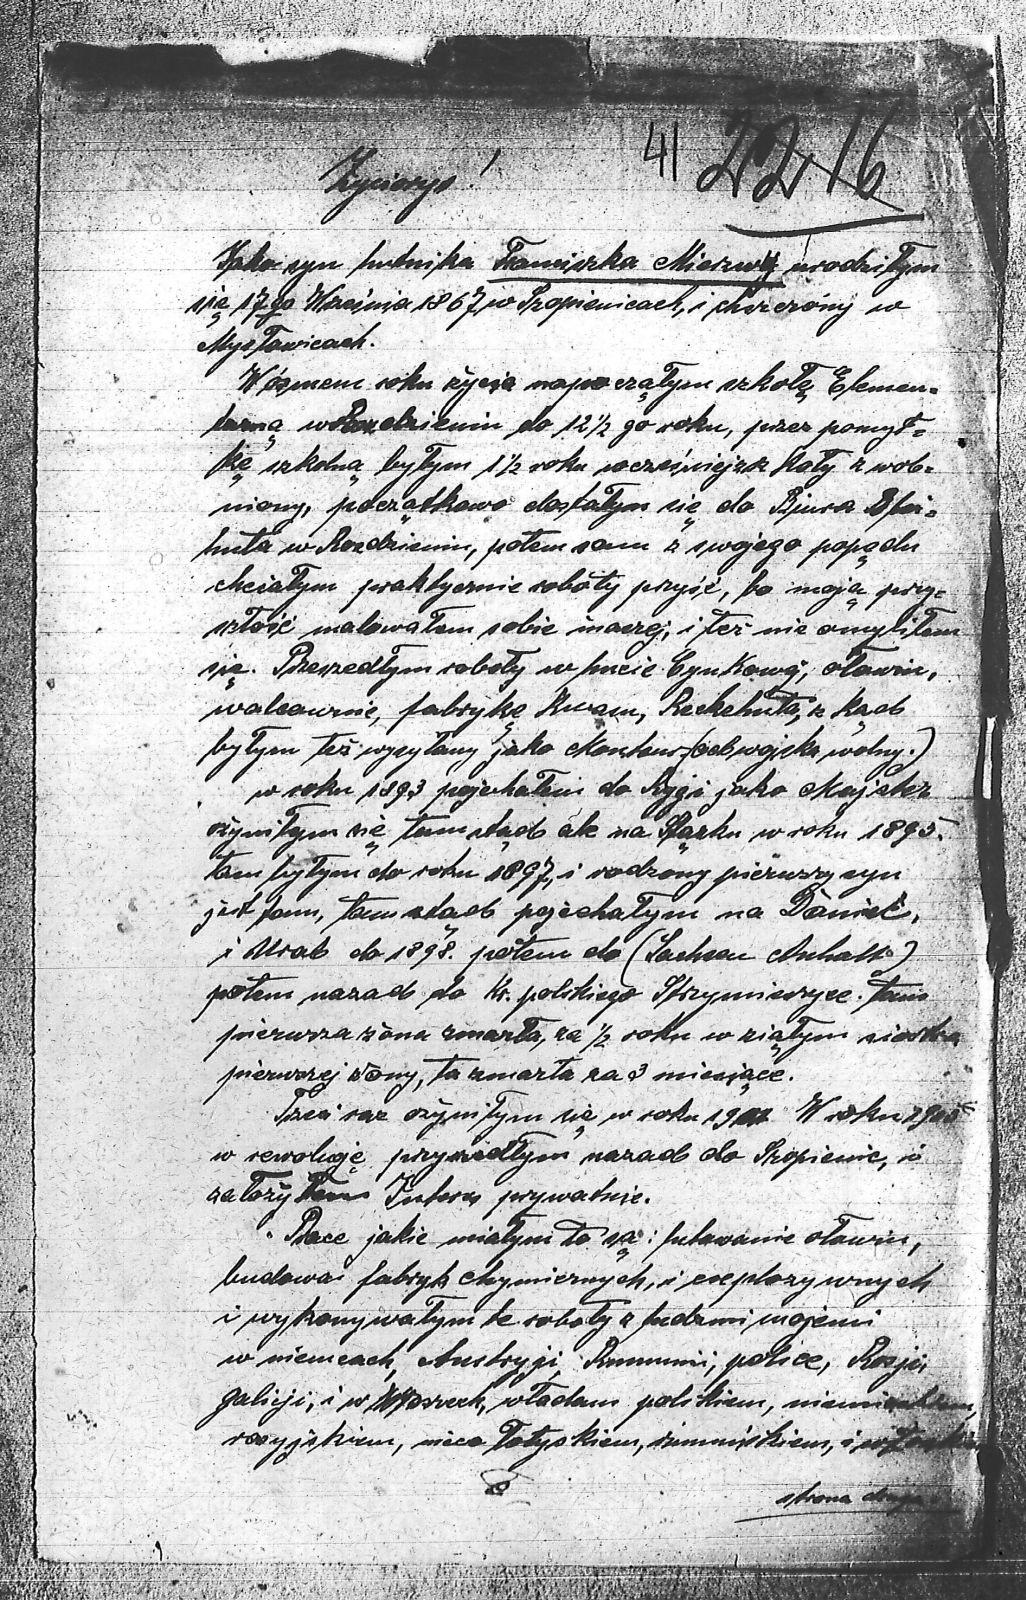 41 2216
Życiorys!
Jako syn hutnika Franciszka Mierzwy urodziłym
się 17go Września 1867 w Szopienicach, i chrzczony w
Mysłowicach.
W ósmem roku życia napoczątym szkołę Elemen=
tarną w Rozdzieniu do 12½ go roku, przez pomył=
kę szkolną byłym 1½ roku wcześniejsze z
niony, początkowo dostałym się do Biura
huta w Rozdzieniu, potem sam z swojego popędu
chciałym praktycznie roboty przyść, bo moją przy=
szłość malowałem sobie inaczej, i też nie omyliłem
się. Przeszedłym roboty w hucie Cynkowy, ołowiu,
walcownie, fabrykę Kwasu, Reckehuta, z kąd
byłym też wysyłany jako Monteur (od wojska wolny.)
w roku 1893 pojechałem do Rygi jako Majster
ożyniłym się tam stąd ale na Śląsku w roku 1895.
tam byłym do roku 1897, i rodzony pierwszy syn
jest tam, tam stąd pojechałym na Daniec,
i Ural do 1898. potem do (Sachsen Anhalt)
potem nazad do Kr. polskiego Strzymieszyce. tam
pierwsza żona zmarła, za ½ roku w ziątym siostra
pierwszej żony, ta zmarła za 3 miesiące.
Trzeci raz ożyniłym się w roku W roku 1905
w rewolucję przyszedłym nazad do Szopienic, i
założyłem Interes prywatnie.
Prace jakie miałym to są: lutowanie ołowiu,
budowa fabryk chymicznych, i explozywnych
i wykonywałym te roboty z ludzmi mojemi
w niemcach, Austryji, Rumunii, polsce, Rosji,
galicji, i w Włoszech, władam polskiem, niemieckiem,
rosyjskiem, nieco łotyskiem, rumuńskiem, i włoskiem
strona druga